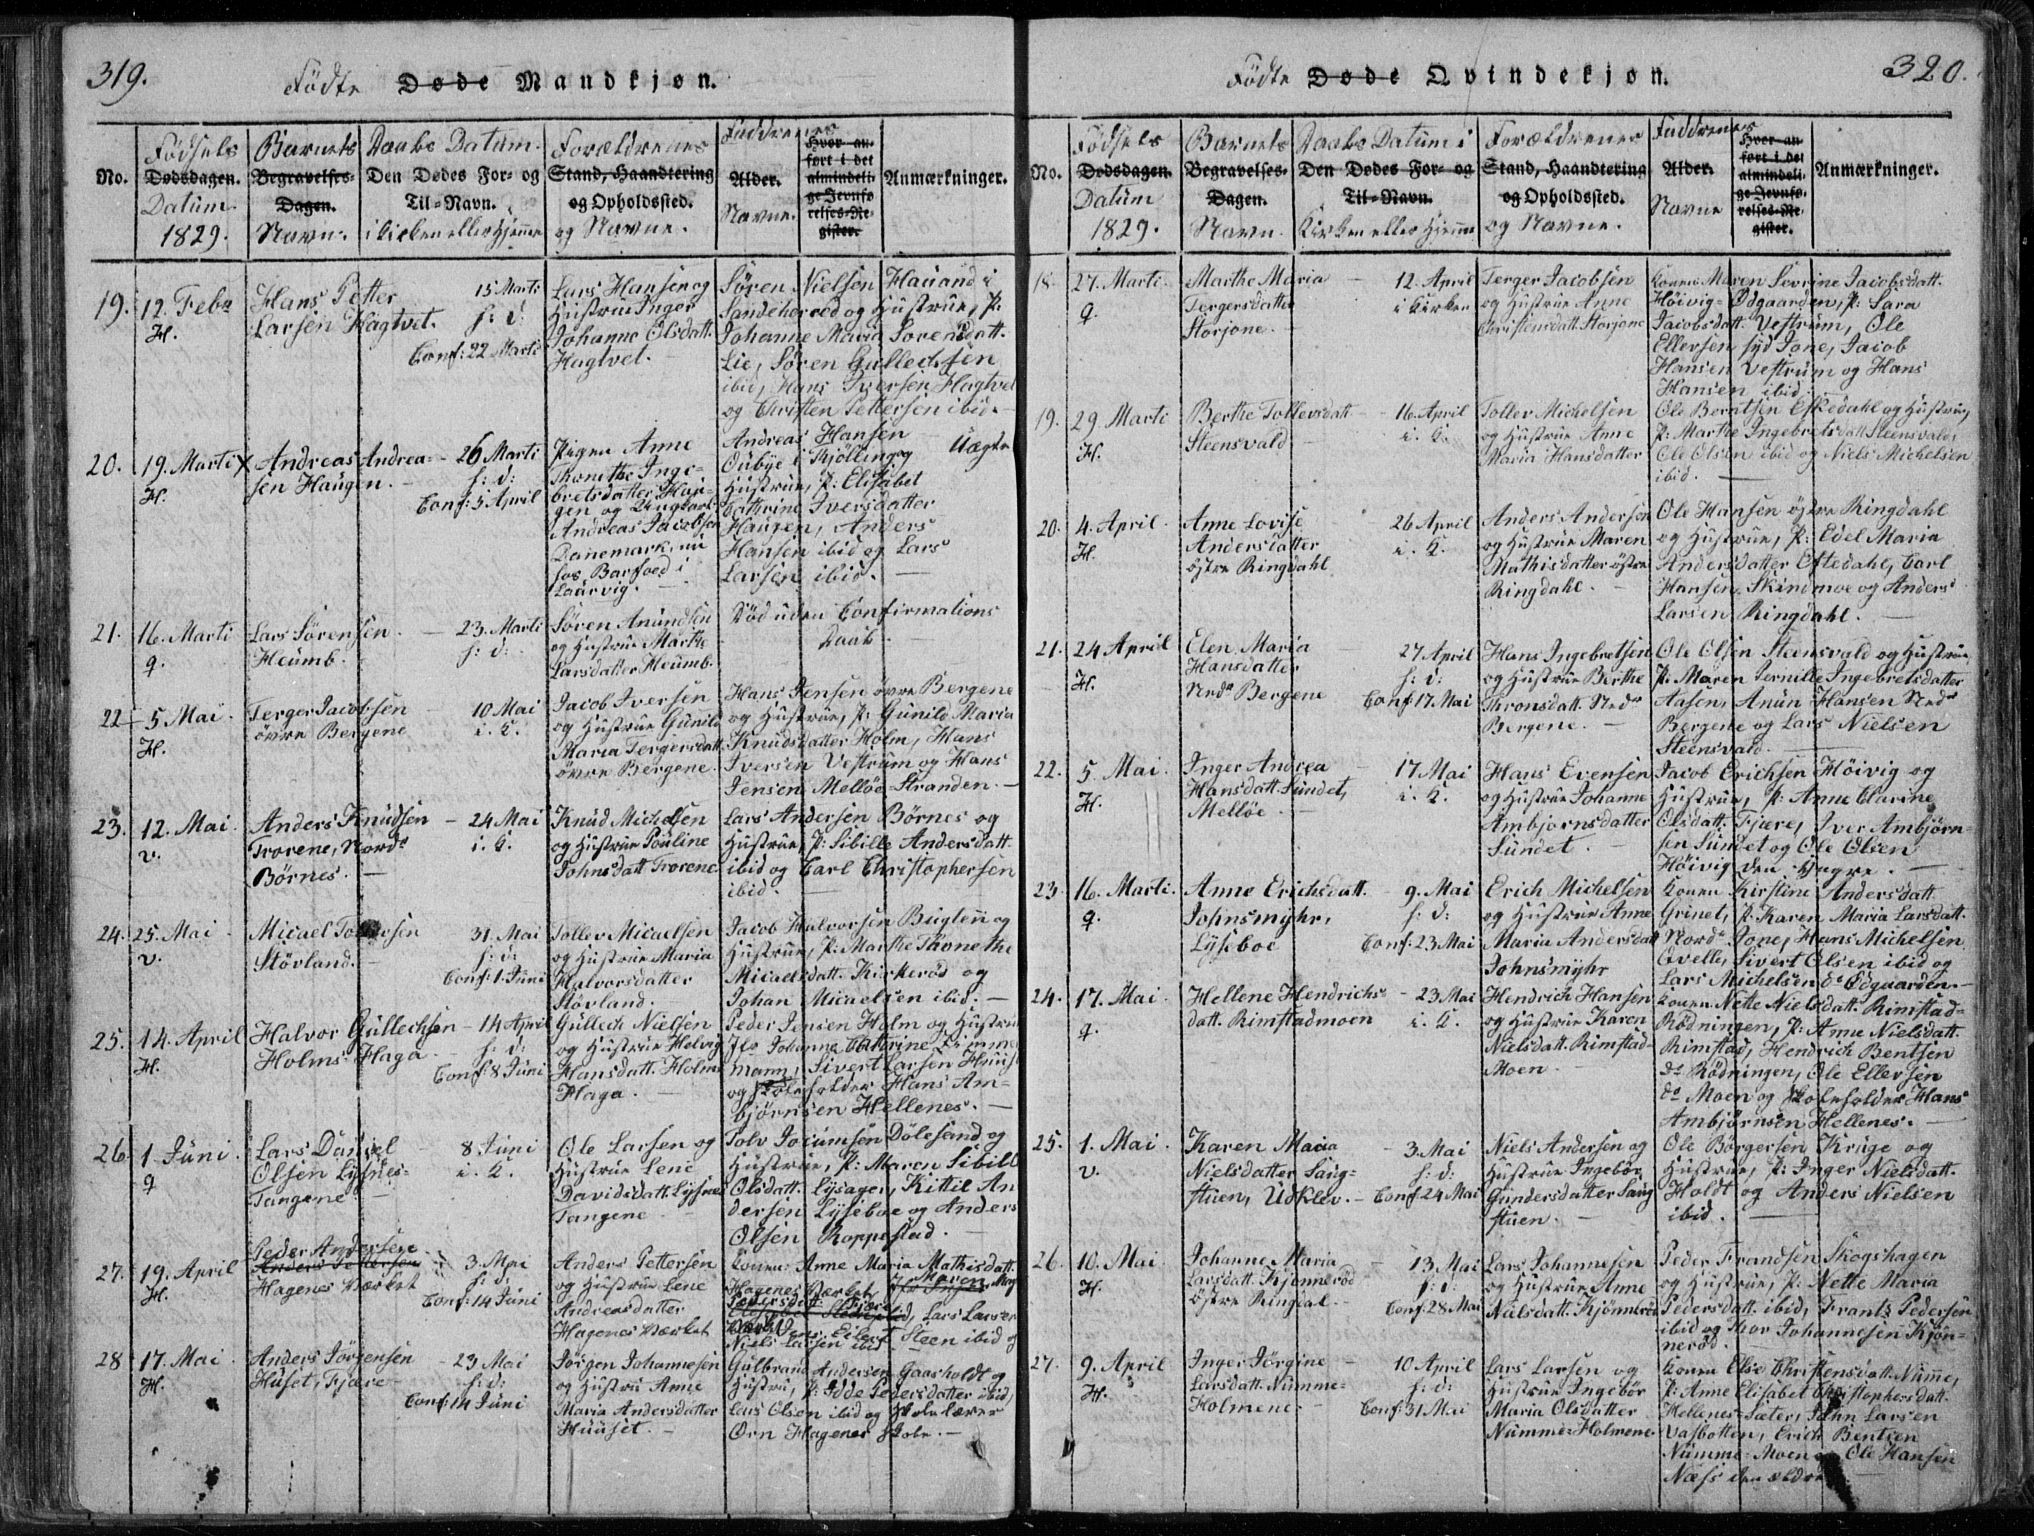 319.
Födte Døde Mandkjøn.
No.
Födsels
Dødsdagen.
Datum
1829.
Barnets
Begravelses-
Dagen.
Navn.
Daabs Datum.
Den Dødes For- og
Til-Navn.
i Kirken eller Hjemme
Forældrenes
Stand, Haandtering
og Opholdssted.
og Navne.
Faddrenes
Alder.
Navne.
Hvor an-
ført i det
almindeli-
ge Jevnfø-
relses-Re-
gister.
Anmærkninger.
19.
12. Febr
H.
Hans Petter
Larsen Hagtvet.
15 Marti
h: d:
Conf: 22 Marti
Lars Hansen og
Hustrue Inger
Johanne Olsdatt.
Hagtvet.
Søren Nielsen Hauand i
Sandeherred og Hustrue, P:
Johanne Maria Sorensdatt.
Lie, Søren Gullechsen
ibid, Hans Iversen Hagtvet
og Christen Pettersen ibid.
20.
19. Marti
H.
Andreas Andrea=
sen Haugen.
26 Marti
h: d:
Conf: 5 April
Pigen Anne
Thonethe Inge-
bretsdatter Hau-
gen og Ungkarl
Andreas Jacobsen
Danemark, nu
hos Barfoed i
Laurvig.
Andreas Hansen
Oubye i Kjølling og
Hustrue, P: Elisabet
Cathrine Iversdatter
Haugen, Anders
Hansen ibid og Lars
Larsen ibid.
Uægte
21.
16. Marti
q.
Lars Sörensen
Heumb.
23. Marti
h: d:
Søren Anundsen
og Hustrue Marthe
Larsdatter Heumb.
Død uden Confirmations
Daab.
22
5 Mai.
H.
Terger Jacobsen
øvre Bergene
10 Mai
i. K.
Jacob Iversen
og Hustrue Gunild
Maria Tergersdatt.
øvre Bergene.
Hans Jensen øvre Bergene
og Hustrue, P: Gunild Maria
Knudsdatter Holm, Hans
Iversen Vestrum og Hans
Jensen Melløe Stranden.
23.
12. Mai.
v.
Anders Knudsen
Trorene, Nordr
Börnes.
24 Mai
i. K.
Knud Michelsen
og Hustrue Pouline
Johnsdatt Trorene
Lars Andersen Børnes og
Hustrue, P: Sibille Andersdatt.
ibid og Carl Christophersen
ibid
24.
25. Mai
v.
Micael Tollevsen
Støvland.
31. Mai
h: d:
Conf: 1 Juni
Tollev Micaelsen
og Hustrue Maria
Halvorsdatter
Støvland.
Jacob Halvorsen Bugten og
Hustrue, P: Marthe Thonethe
Micaelsdatt. Kirkerød og
Johan Micaelsen ibid.
25.
14. April
H.
Halvor Gullechsen
Holms Haga
14 April
h: d:
Conf: 8 Juni
Gullech Nielsen
og Hustrue Helvig
Hansdatt. Holms
Haga.
Peder Jensen Holm og Hustrue
Jfr Johanne Cathrine Zimmer
mann, Sivert Larsen Huus
og Skoleholder Hans Am-
bjørnsen Hellenes.
26.
1. Juni.
q
Lars Daniel
Olsen Lysnes=
Tangene
8 Juni
i. K.
Ole Larsen og
Hustrue Lene
Davidsdatt. Lysnes
Tangene
Tolv Jocumsen Dølesand og
Hustrue, P: Maren Sibill
Olsdatt. Lysager, Kittil An
dersen Lyseboe og Anders
Olsen Roppestad.
27.
19. April
H.
Peder Andersene
Anders Pettersen
Hagenes Værket
3. Mai
h: d:
Conf: 14 Juni
Anders Pettersen
og Hustrue Lene
Andreasdatter
Hagenes Værket
Konen Anne Maria Mathisdatt.
Hagenes Værket, Jfr Inger Maren Mar
Pedersdatt. Fjære
Lars Larsen
Værket, Eilert Steen ibid og
Niels Larsen ibid
28
17. Mai
H.
Anders Jørgensen
Huset, Fjære
23 Mai
h: d:
Conf: 14 Juni
Jørgen Johannesen
og Hustru Anne
Maria Andersdatter
Huuset.
Gulbrand Andersen Gaasholdt og
Hustru, P: Idde Pedersdatter ibid,
Lars Olsen ibid og Skolelærer
Örn Hagenes Skole.
320.
Födte Døde Qvindekjøn.
No.
Födsels
Dødsdagen.
Datum
1829.
Barnets
Begravelses-
Dagen.
Navn.
Daabs Datum i
Den Dødes For- og
Til-Navn.
Kirken eller Hjemme
Forældrenes
Stand, Haandtering
og Opholdssted.
og Navne.
Faddrenes
Alder.
Navne
Hvor an-
ført i det
almindeli-
ge Jevnfø-
relses-Re-
gister.
Anmærkninger.
18.
27. Marti
q.
Marthe Maria
Tergersdatter
Storjone.
12. April
i Kirken
Terger Jacobsen
og Hustrue Anne
Christensdatt. Storjone
Konen Maren Sevrine Jacobsdatt.
Höivig-Ödgaarden, P: Sara
Jacobsdatt. Vestrum, Ole
Ellersen syd Jone, Jacob
Hansen Vestrum og Hans
Hansen ibid.
19.
29. Marti
H.
Berthe Tollevsdatt
Steensvald
16. April
i. K.
Tollev Michelsen
og Hustrue Anne
Maria Hansdatter
Ole Berntsen Eskedahl og Hustrue,
P: Marthe Ingebretsdatt Steensvald,
Ole Olsen ibid og Niels Michelsen
ibid.
20.
4. April.
H.
Anne Lovise
Andersdatter
östre Ringdahl
26 April
i. K.
Anders Andersen
og Hustrue Maren
Mathisdatter östre
Ringdahl.
Ole Hansen östre Ringdahl
og Hustrue, P: Edel Maria
Andersdatter Eftedahl, Carl
Hansen Skindmoe og Anders
Larsen Ringdahl.
21.
24 April
H.
Elen Maria
Hansdatter
Nedr Bergene
27 April
h: d:
Conf 17. Mai
Hans Ingebretsen
og Hustrue Berthe
Thronsdatt. Nedr
Bergene.
Ole Olsen Steensvald og Hustrue,
P: Maren Pernille Ingebretsdatter
Aasen, Anun Hansen Nedr
Bergene og Lars Nielsen
Steensvald.
22.
5. Mai.
H.
Inger Andrea
Hansdatt. Sundet,
Melløe
17 Mai
i. K.
Hans Evensen
og Hustrue Johanne
Ambjornsdatter
Sundet.
Jacob Erichsen Höivig og
Hustrue, P: Anne Clarine
Olsdatt. Fjære, Iver Ambjörn-
sen Sundet og Ole Olsen
Höivig den Yngre.
23
16. Marti.
q.
Anne Erichsdatt.
Johnsmyhr,
Lyseboe
9. Mai
h: d:
Conf: 23 Mai
Erich Michelsen
og Hustrue Anne
Maria Andersdatt
Johnsmyhr
Konen Kirstine Andersdatt.
Grinet, P: Karen Maria Larsdatt.
Nordr Jone, Hans Michelsen
Qvelle, Sivert Olsen ibid og
Lars Michelsen do Ödgaarden.
24.
17. Mai
q.
Hellene Hendrichs=
datt. Rimstadmoen
23 Mai
i. K.
Hendrich Hansen
og Hustrue Karen
Nielsdatt. Rimstad-
Moen.
Konen Nette Nielsdatt. Rimstad-
Rödningen, P: Anne Nielsdatt.
Rimstad, Hendrich Bentsen
do Rödningen, Ole Ellersen
do Moen og Skoleholder Hans
Ambjørnsen Hellenes.
25.
1. Mai.
v.
Karen Maria
Nielsdatter Saug-
stuen, Udklev.
3. Mai
h: d:
Conf 24 Mai
Niels Andersen og
Hustrue Ingebör
Gundersdatter Saug
stuen.
Ole Börgersen Krige og
Hustrue, P: Inger Nielsdatt.
Holdt og Anders Nielsen
ibid.
26.
10. Mai
H.
Johanne Maria
Larsdatt. Kjønnerød
östre Ringdal.
13 Mai
h: d:
Conf: 28 Mai
Lars Johannesen
og Hustrue Anne
Nielsdatt. Kjönnerød
Peder Frandsen Skogshagen
og Hustrue, P: Nette Maria
Pedersdatt. ibid, Frants Pedersen
ibid og Thor Johannesen Kjön-
neröd.
27.
9. April
H.
Inger Jörgine
Larsdatt. Numme-
Holmene.
10 April
h: d:
Conf: 31 Mai
Lars Larsen og
Hustrue Ingebör
Maria Olsdatter
Numme-Holmene
Konen Else Christensdatt. Numme,
P: Anne Elisabet Christophersdatt.
Hellenes-Sæter, John Larsen
Vasbotten, Erich Bentsen
Numme-Moen og Ole Hansen
Næss den ældre